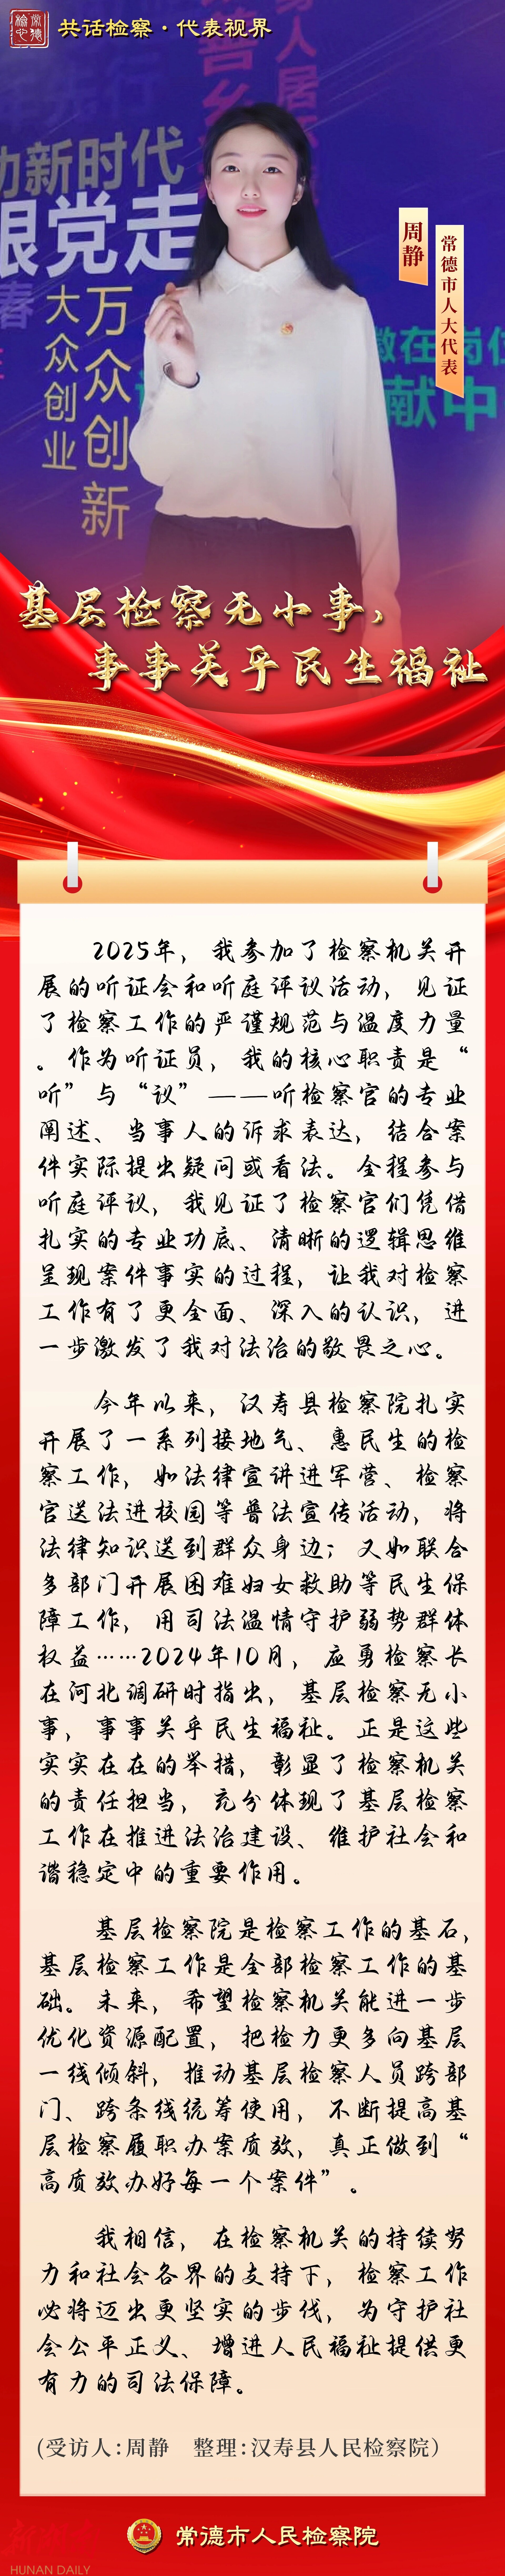 常德
检心
共话检察·代表视界
年先行
善乡
身人居
动新时代
跟党走
春
万众创新
大众创业
徽在岗位
献中
周静
常德市人大代表
基层检察无小事，
事事关乎民生福祉
2025年，我参加了检察机关开
展的听证会和听庭评议活动，见证
了检察工作的严谨规范与温度力量
。作为听证员，我的核心职责是“
听”与“议”——听检察官的专业
阐述、当事人的诉求表达，结合案
件实际提出疑问或看法。全程参与
听庭评议，我见证了检察官们凭借
扎实的专业功底、清晰的逻辑思维
呈现案件事实的过程，让我对检察
工作有了更全面、深入的认识，进
一步激发了我对法治的敬畏之心。
今年以来，汉寿县检察院扎实
开展了一系列接地气、惠民生的检
察工作，如法律宣讲进军营、检察
官送法进校园等普法宣传活动，将
法律知识送到群众身边；又如联合
多部门开展困难妇女救助等民生保
障工作，用司法温情守护弱势群体
权益……2024年10月，应勇检察长
在河北调研时指出，基层检察无小
事，事事关乎民生福祉。正是这些
实实在在的举措，彰显了检察机关
的责任担当，充分体现了基层检察
工作在推进法治建设、维护社会和
谐稳定中的重要作用。
基层检察院是检察工作的基石，
基层检察工作是全部检察工作的基
础。未来，希望检察机关能进一步
优化资源配置，把检力更多向基层
一线倾斜，推动基层检察人员跨部
门、跨条线统筹使用，不断提高基
层检察履职办案质效，真正做到“
高质效办好每一个案件”。
我相信，在检察机关的持续努
力和社会各界的支持下，检察工作
必将迈出更坚实的步伐，为守护社
会公平正义、增进人民福祉提供更
有力的司法保障。
(受访人:周静 整理:汉寿县人民检察院)
常德市人民检察院
HUNAN DAILY